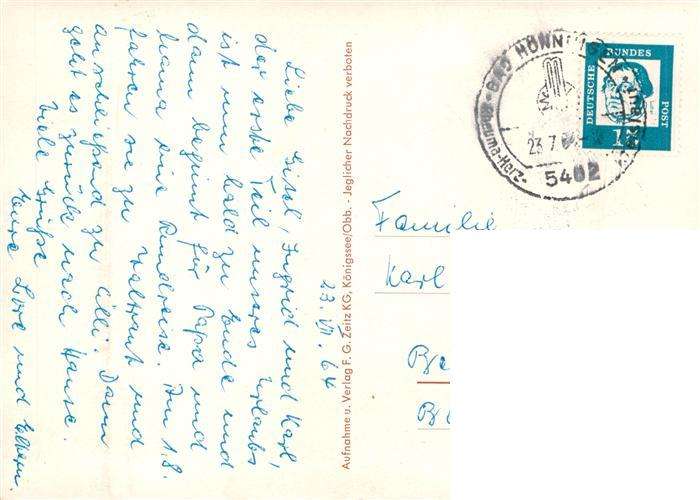 23. VII. 64
Liebe Gisel, Ingrid und Karl,
der erste Teil unseres Urlaubs
ist nun bald zu Ende und
dann beginnt für Papa und
Mama eine Rundreise. Am 1.8.
fahren sie zu Waltraut und
anschließend zu Cilli. Dann
geht es zurück nach Hause.
Viele Grüße
Eure Lore und Eltern.
Aufnahme u. Verlag F. G. Zeitz KG, Königssee/Obb. - Jeglicher Nachdruck verboten
BAD HÖNNINGEN
23.7.64
5462
DEUTSCHE
BUNDES
POST
15
Familie
Karl